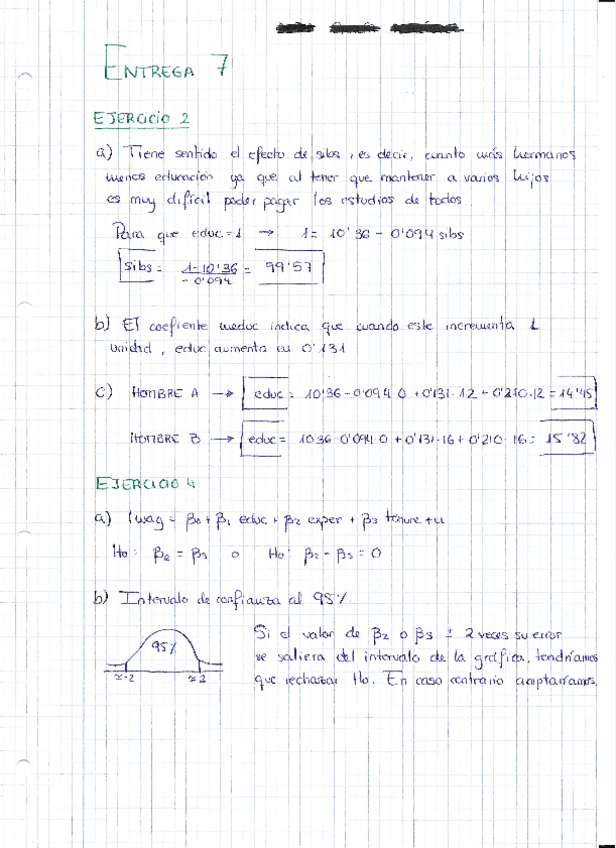 ENTREGA 7
EJERCICIO 2
a) Tiene sentido el efecto de sibs, es decir, cuanto más hermanos
menos educación ya que al tener que mantener a varios hijos
es muy difícil poder pagar los estudios de todos.
Para que educ=1 → 1= 10'36 - 0'094 sibs
sibs = 1-10'36 / -0'094 = 99'57
b) El coefiente meduc indica que cuando este incrementa 1
unidad, educ aumenta en 0'131
c) HOMBRE A → educ = 10'36-0'094·0+0'131·12+0'210·12=14'45
HOMBRE B → educ = 10'36-0'094·0+0'131·16+0'210·16= 15'82
EJERCICIO 4
a) lwag = β0+β1 educ+β2 exper+β3 tenure+u
Ho: β2 = β3 o Ho: β2-β3=0
b) Intervalo de confianza al 95%.
95%
≈-2 ≈2
Si el valor de β2 o β3 ± 2 veces su error
se saliera del intervalo de la gráfica, tendríamos
que rechazar Ho. En caso contrario aceptaríamos.